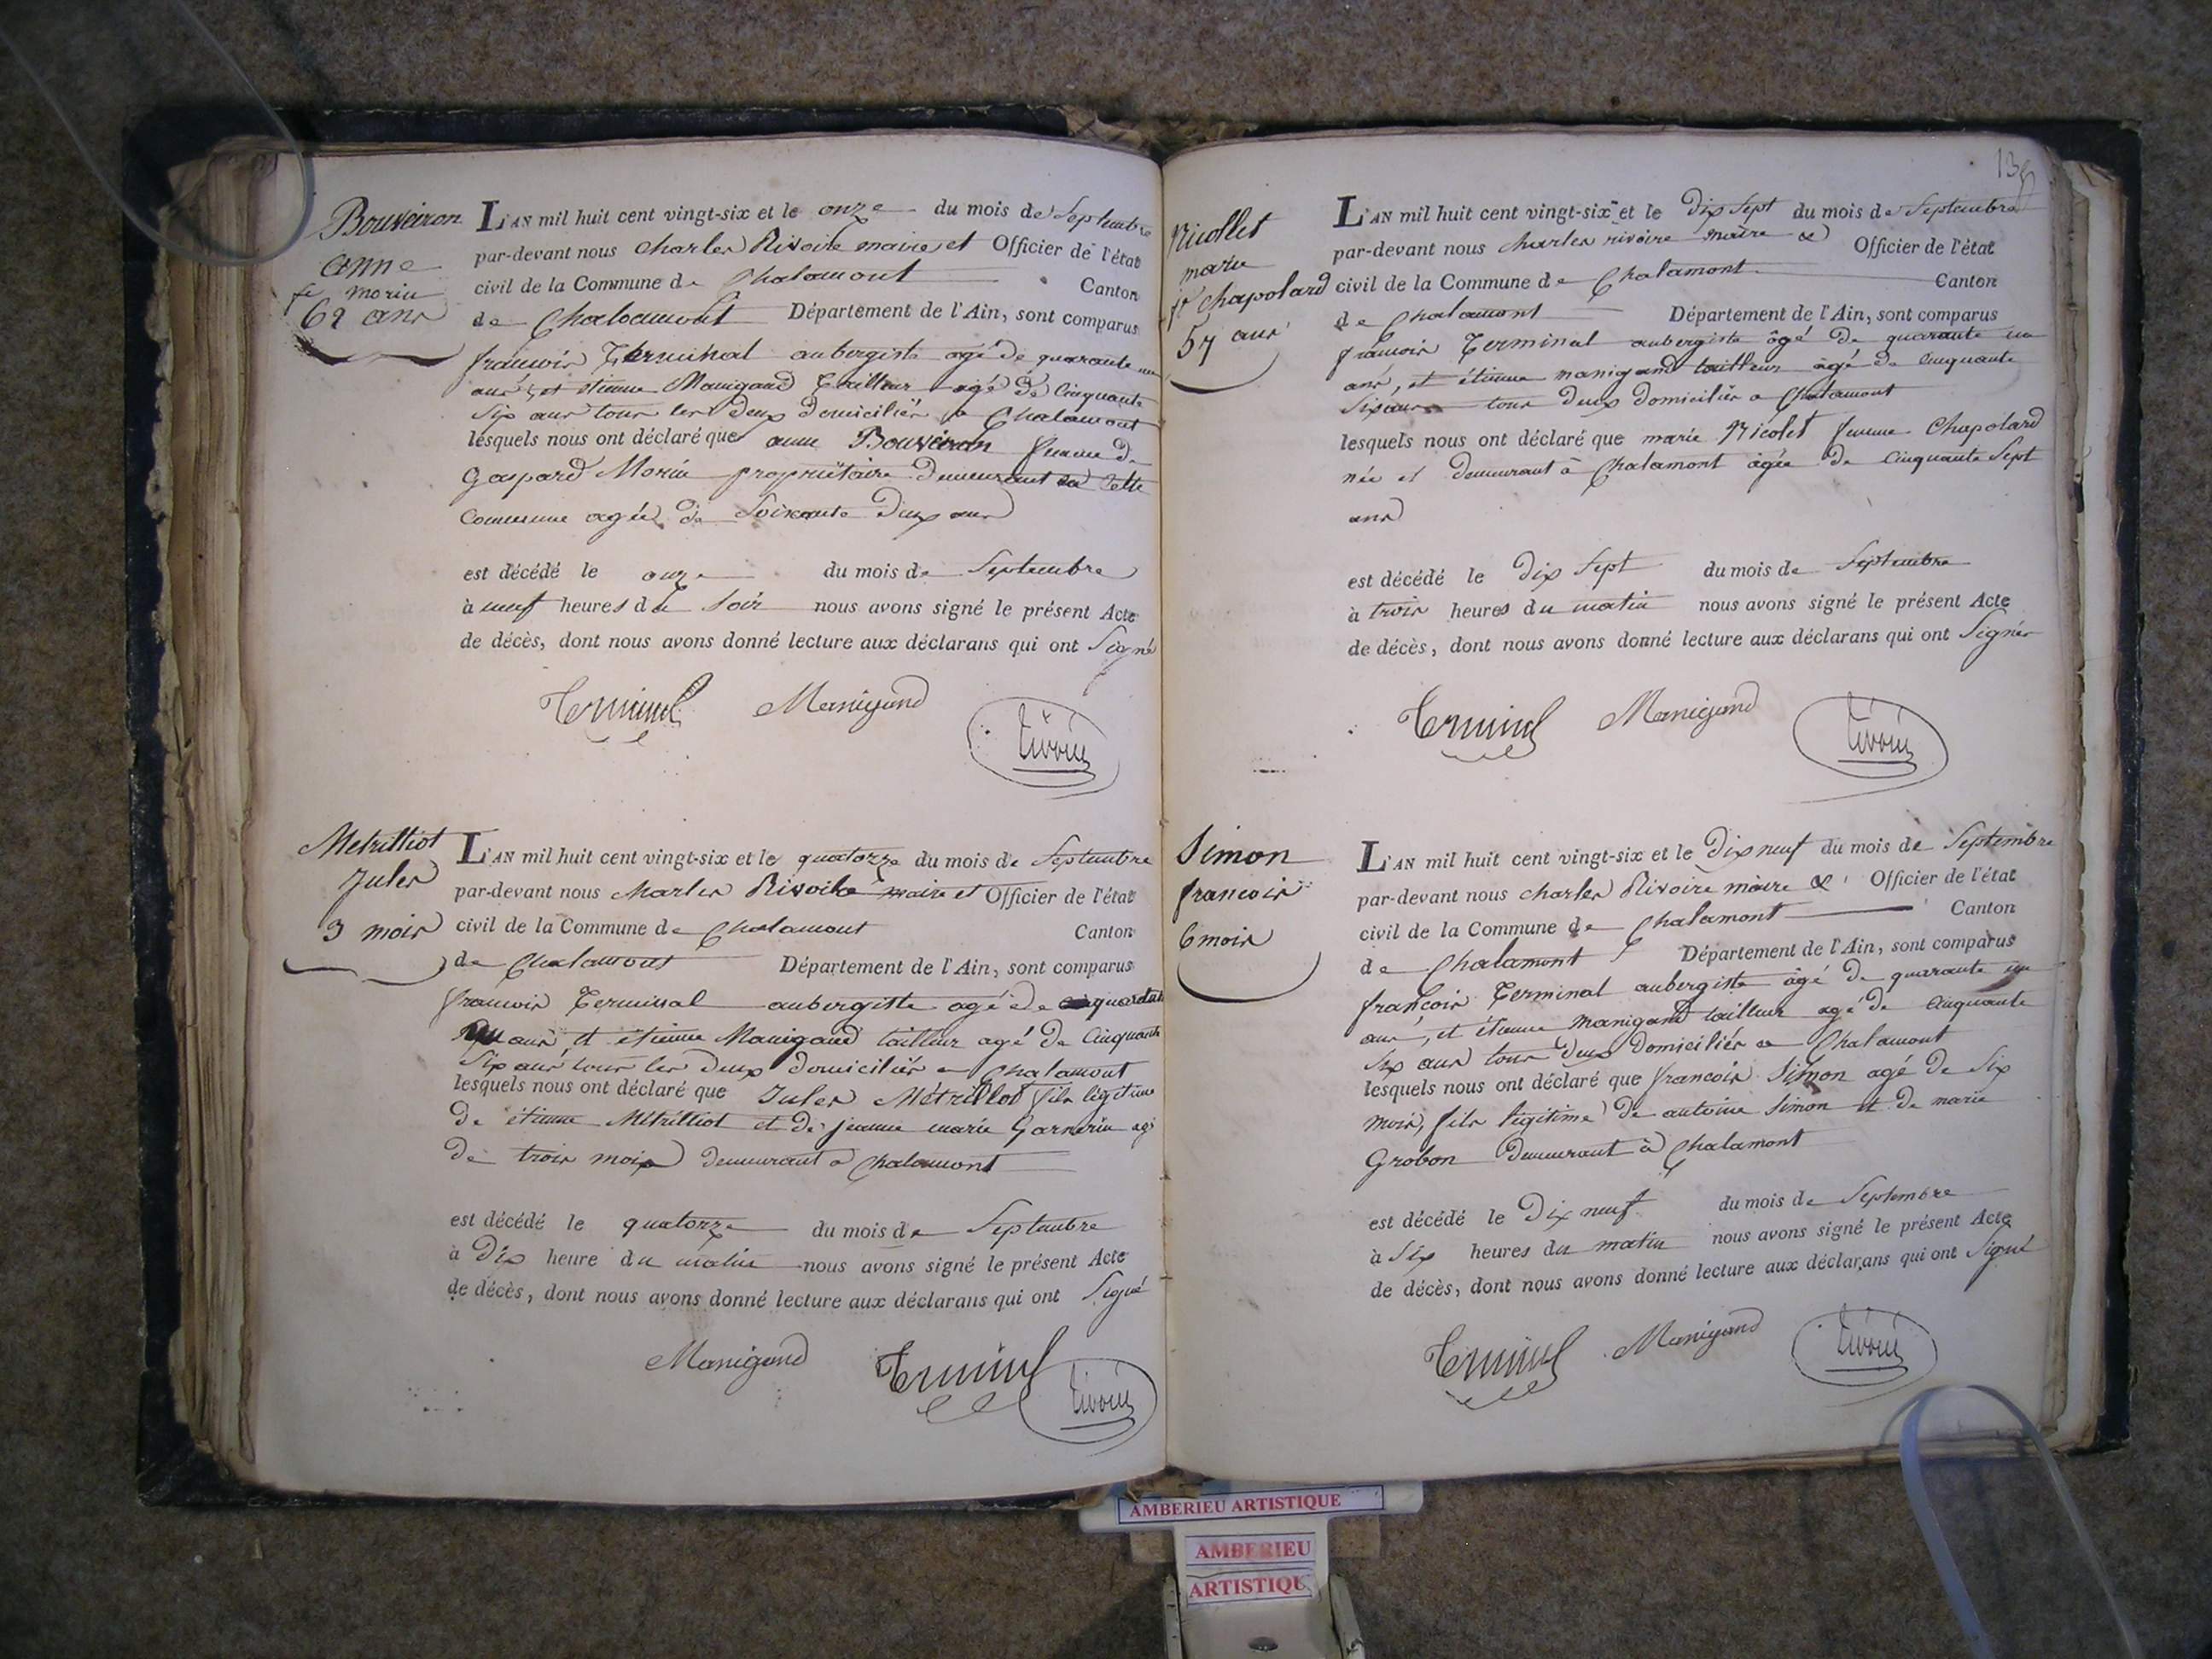 Bouveiron
anne
fe morin
62 ans
L'AN mil huit cent vingt-six et le onze du mois de Septembre
par-devant nous Charles Rivoire maire et Officier de l'état
civil de la Commune de Chalamont Canton
de Chalamont Département de l'Ain, sont comparus
francois Terminal aubergiste agé de quarante un
ans, et etienne Manigand Tailleur agé de Cinquante
Six ans tous les deux domiciliés a Chalamont
lesquels nous ont déclaré que anne Bouveiron femme de
Gaspard Morin propriétaire demeurant en cette
Commune agée de Soixante deux ans
est décédé le onze du mois de Septembre
à neuf heures du Soir nous avons signé le présent Acte
de décès, dont nous avons donné lecture aux déclarans qui ont Signé
Terminal Manigand Rivoire
Metrilliot
Jules
3 mois
L'AN mil huit cent vingt-six et le quatorze du mois de Septembre
par-devant nous Charles Rivoire maire et Officier de l'état
civil de la Commune de Chalamont Canton
de Chalamont Département de l'Ain, sont comparus
francois Terminal aubergiste agé de quarante
un ans, et étienne Manigand tailleur agé de Cinquante
Six ans tous les deux domiciliés a Chalamont
lesquels nous ont déclaré que Jules Métrilliot fils légitime
de étienne Métrilliot et de jeanne marie Garnerin agé
de trois mois demeurant a Chalamont
est décédé le quatorze du mois de Septembre
à Dix heure du matin nous avons signé le présent Acte
de décès, dont nous avons donné lecture aux déclarans qui ont Signé
Manigand Terminal Rivoire
138
Nicollet
marie
fe Chapolard
57 ans
L'AN mil huit cent vingt-six et le Dix Sept du mois de Septembre
par-devant nous Charles rivoire maire & Officier de l'état
civil de la Commune de Chalamont Canton
de Chalamont Département de l'Ain, sont comparus
francois Terminal aubergiste âgé de quarante un
ans, et étienne manigand tailleur âgé de Cinquante
Six ans tous deux Domiciliés a Chalamont
lesquels nous ont déclaré que marie Nicolet femme Chapolard
née et demeurant à Chalamont âgée de Cinquante Sept
ans
est décédé le Dix Sept du mois de Septembre
à trois heures du matin nous avons signé le présent Acte
de décès, dont nous avons donné lecture aux déclarans qui ont Signés
Terminal Manigand Rivoire
Simon
francois
6 mois
L'AN mil huit cent vingt-six et le Dix neuf du mois de Septembre
par-devant nous Charles Rivoire maire & Officier de l'état
civil de la Commune de Chalamont Canton
de Chalamont Département de l'Ain, sont comparus
françois Terminal aubergiste âgé de quarante un
ans, et étienne Manigand tailleur agé de Cinquante
Six ans tous deux Domiciliés a Chalamont
lesquels nous ont déclaré que francois Simon agé de Six
mois, fils légitime de antoine Simon et de marie
Grobon Demeurant à Chalamont
est décédé le Dix neuf du mois de Septembre
à Six heures du matin nous avons signé le présent Acte
de décès, dont nous avons donné lecture aux déclarans qui ont Signé
Terminal Manigand Rivoire
AMBERIEU ARTISTIQUE
AMBERIEU
ARTISTIQU